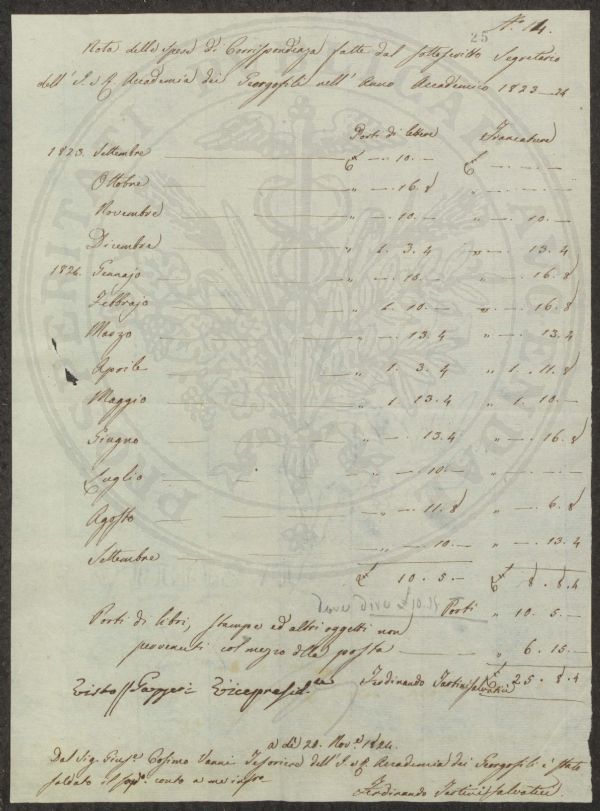 25
N.° 14.
Nota delle spese di Corrispondenza fatte dal sottoscritto Segretario
dell' I. e R. Accademia dei Georgofili nell' Anno Accademico 1823–24
Porti di lettere Francature
1823. Settembre £ — 10. — £ — . —
Ottobre " — 16. 8 " — . —
Novembre " — 10. — " — 10. —
Dicembre " 1. 3. 4 " — 13. 4
1824. Gennajo " — 10. — " — 16. 8
Febbrajo " 1. 10. — " — 16. 8
Marzo " — 13. 4 " — 13. 4
Aprile " 1. 3. 4 " 1. 11. 8
Maggio " 1. 13. 4 " 1. 10. —
Giugno " — 13. 4 " — 16. 8
Luglio " — 10. — " — . —
Agosto " — 11. 8 " — 6. 8
Settembre " — 10. — " — 13. 4
£ 10. 5. — £ 8. 8. 4
Porti " 10. 5. —
Porti di libri, stampe ed altri oggetti non
pervenuti col mezzo della posta " 6. 15. —
£ 25. 8. 4
Visto Gazzeri Vicepresid.te Ferdinando Tartini Salvatici
a dì 28. Nov.e 1824.
Dal Sig. Gius.e Cosimo Vanni Tesoriere dell' I. e R. Accademia dei Georgofili è stato
saldato il sop.o conto a me infr.o
Ferdinando Tartini Salvatici
PROSPERITATI PUBLICAE AUGENDAE